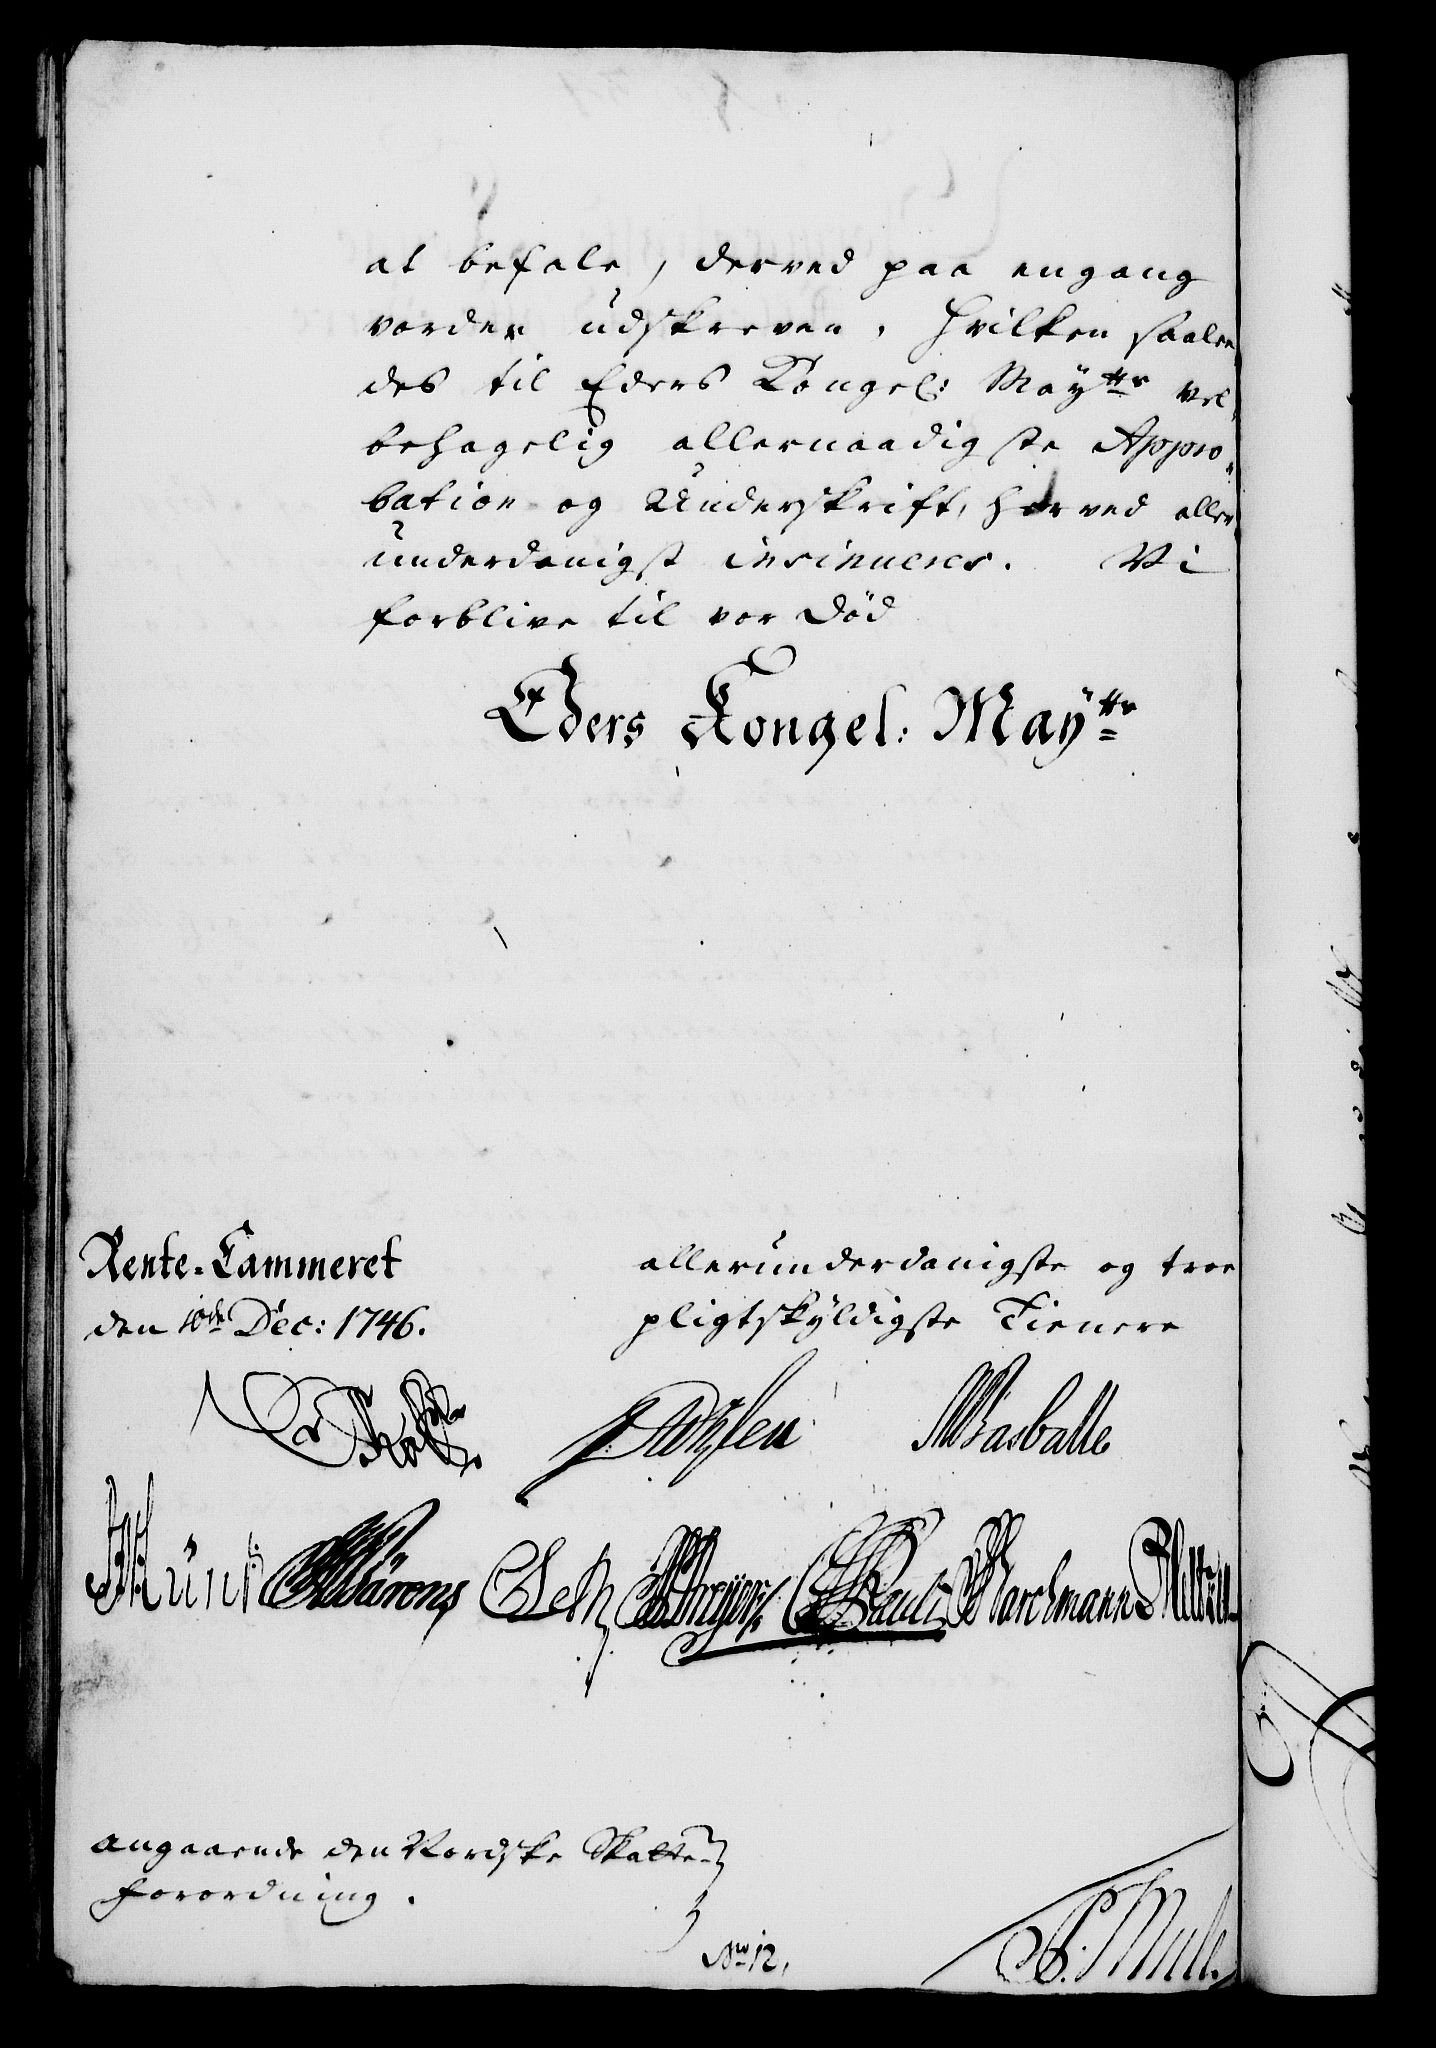 at befale, derved paa engang
vorder udskreven, Hvilken saalee
des til Eders Kongel: May^tts vel
behagelig allernaadigste Appro-
bation og Underskrift, herved aller
underdanigst insinueres. Vi
forblive til vor Död
Eders Kongel: May^tts
Rente-Cammeret
den 10de Dec: 1746.
allerunderdanigste og troe
pligtskyldigste Tienere
Wasballe
angaaende den Nordske Skatte-
Forordning.
No 12,